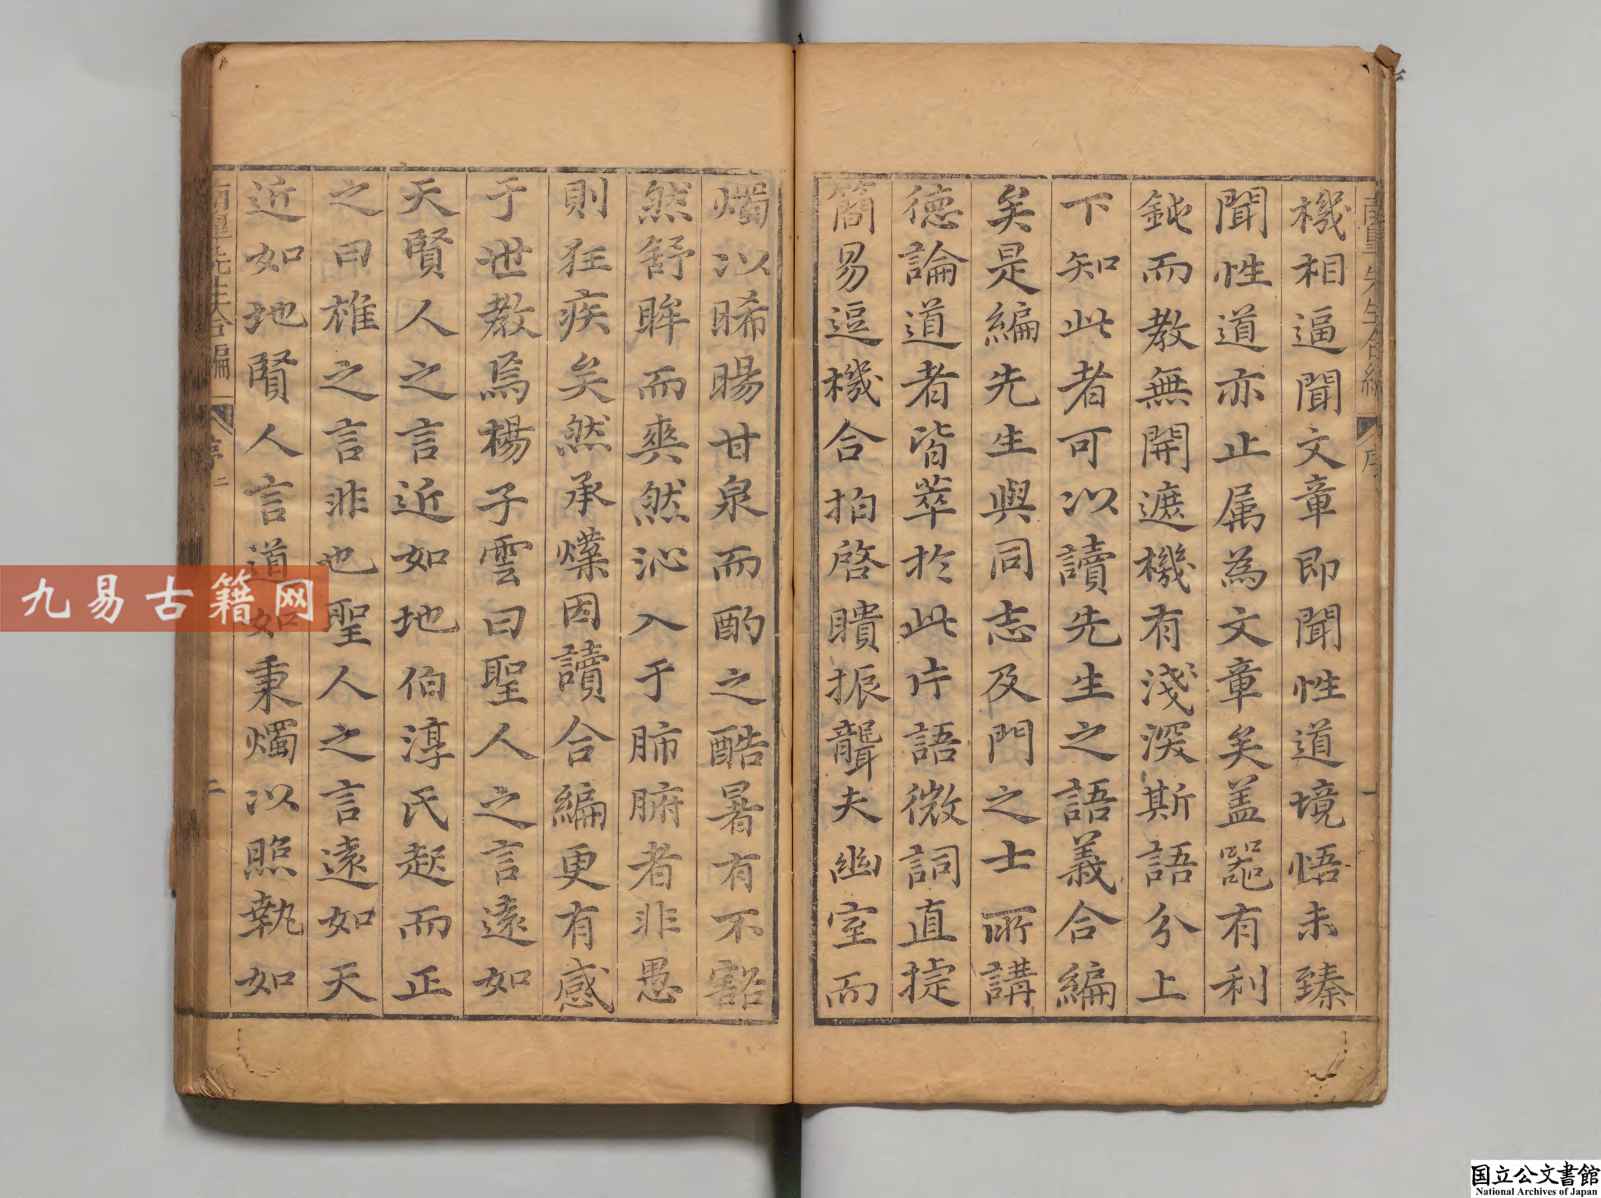 機相逼聞文章即聞性道境悟未臻
聞性道亦止属為文章矣盖器有利
鈍而教無開遮機有淺深斯語分上
下知此者可以讀先生之語義合編
矣是編先生與同志及門之士所講
德論道者皆萃於此片語微詞直提
簡易逗機合拍啓瞶振聾夫幽室而
燭以晞暘甘泉而酌之酷暑有不豁
然舒眸而爽然沁入于肺腑者非愚
則狂疾矣然承爃因讀合編更有感
于世教焉楊子雲曰聖人之言遠如
天賢人之言近如地伯淳氏起而正
之曰雄之言非也聖人之言遠如天
近如地賢人言道如秉燭以照執如
先生合編
序二
二
先生合編
序
一
九易古籍网
国立公文書館
National Archives of Japan